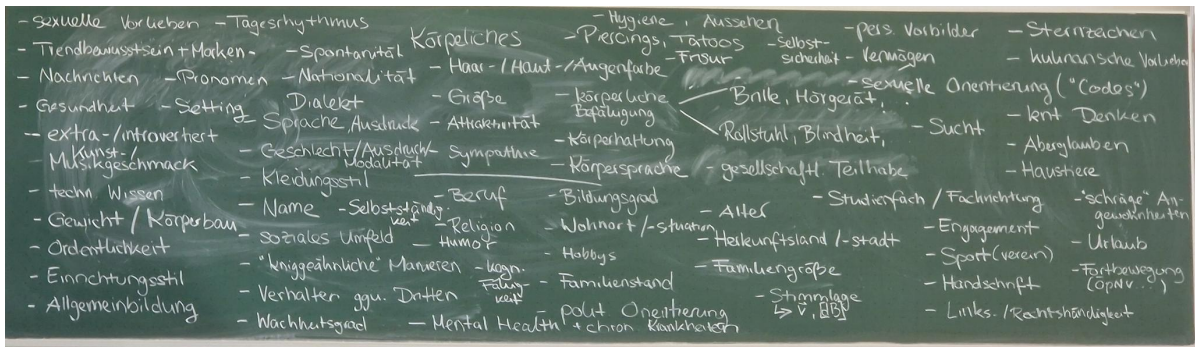 - sexuelle Vorlieben
- Trendbewusstsein + Marken -
- Nachrichten
- Gesundheit
- extra-/introvertiert
- Kunst-/
Musikgeschmack
- techn Wissen
- Gewicht / Körperbau
- Ordentlichkeit
- Einrichtungsstil
- Allgemeinbildung
- Tagesrhythmus
- Spontanität
- Pronomen
- Nationalität
- Setting
Dialekt
- Sprache, Ausdruck
- Geschlecht/Ausdruck/
Modalität
- Kleidungsstil
- Name
- Selbstständig-
keit
- soziales Umfeld
- "kniggeähnliche" Manieren
- Verhalten ggü. Dritten
- Wachheitsgrad
Körperliches
- Haar-/Haut-/Augenfarbe
- Größe
- Attraktivität
- Sympathie
- Beruf
- Religion
- Humor
- kogn.
Fähig-
keit
- Mental Health + chron Krankheiten
- Hygiene, Aussehen
- Piercings, Tatoos
- Frisur
- Selbst-
sicherheit
- körperliche
Befähigung
Brille, Hörgerät,
Rollstuhl, Blindheit,
- Körperhaltung
- Körpersprache
- gesellschaftl. Teilhabe
- Bildungsgrad
- Wohnort /-situation
- Hobbys
- Familienstand
- polit Orientierung
- Alter
- Herkunftsland /-stadt
- Familiengröße
- Stimmlage
- pers. Vorbilder
- Vermögen
- sexuelle Orientierung ("Codes")
- Sucht
- Studienfach / Fachrichtung
- Engagement
- Sport(verein)
- Handschrift
- Links-/Rechtshändigkeit
- Sternzeichen
- kulinarische Vorlieben
- Aberglauben
- Haustiere
- "schräge" An-
gewohnheiten
- Urlaub
- Fortbewegung
(ÖPNV...)